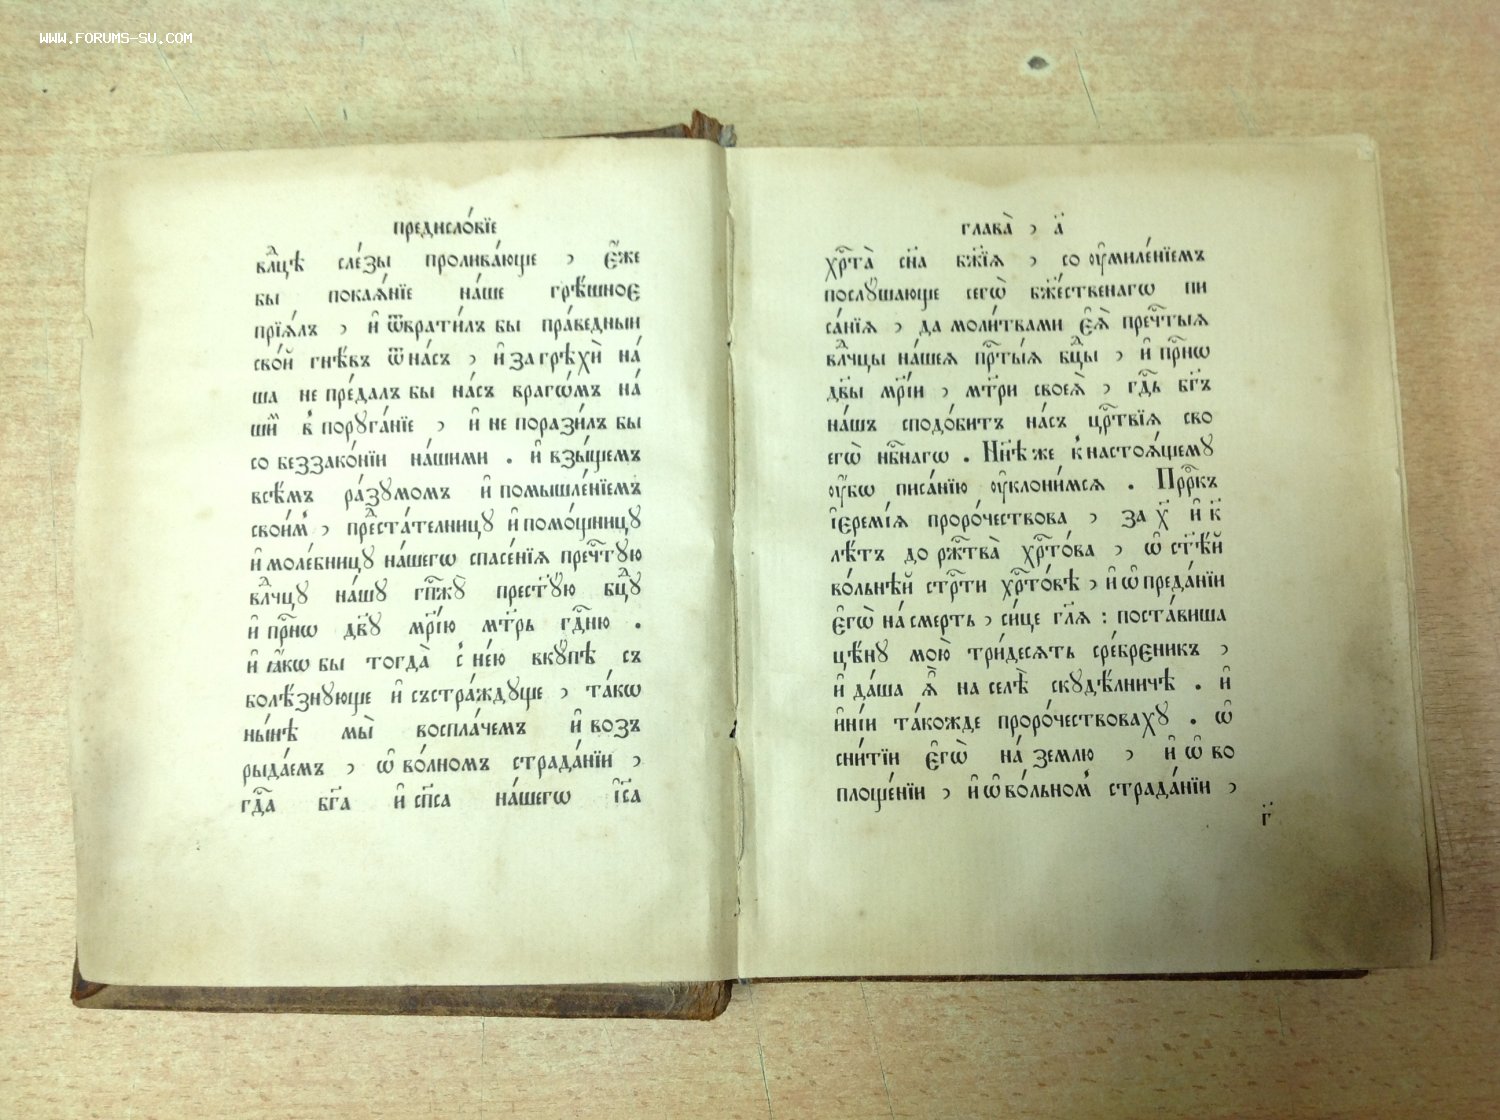 WWW.FORUMS-SU.COM
предисло́вїе
вл҃цѣ сле́зы пролива́юще , є҆́же
бы покаѧ́нїе на́ше грѣ́шноє
прїѧ́лъ , и҆ ѿврати́лъ бы пра́ведныи
сво́й гнѣ́въ ѿ на́съ , и҆ за грѣхѝ на́
ша не пре́далъ бы на́съ врагѡ́мъ на́
ши҆̀ в̾ поруга́нїе , и҆ не порази́лъ бы
со беззако́нїи на́шими . и҆ взы́щемъ
всѣ́мъ ра́зумомъ и҆ помышле́нїемъ
свои́м̾ , предста́телницу и҆ помо́щницу
и҆ моле́бницу на́шегѡ спасе́нїѧ преч҇тую
влⷣчцу на́шу гп҃жꙋ прест҃ꙋ́ю бцⷣꙋ
и҆ прⷭ҇нѡ дв҃ꙋ мр҃і́ю мт҃рь гдⷭ҇ню .
и҆ ꙗ҆́кѡ бы тогда̀ с̾ не́ю вкꙋпѣ съ
болѣ́знꙋюще и҆ състра́ждꙋще , та́кѡ
ны́нѣ мы̀ воспла́чемъ и҆ возъ
рыда́емъ , ѡ҆ во́лномъ страда́нїи ,
гдⷭ҇а бг҃а и҆ сп҃са на́шегѡ і҆с҃а
глава̀ , а҃
хрⷭ҇та̀ сн҃а бж҃їѧ , со ᲂу҆миле́нїемъ
послꙋшающе сегѡ̀ бж҃е́ственагѡ пи
са́нїѧ , да моли́твами є҆ѧ̀ преч҇тыѧ
влⷣчцы на́шеѧ прⷭ҇ты́ѧ бцⷣы , и҆ прⷭ҇нѡ
дв҃ы мр҃і́и , мт҃ри своеѧ̀ , гдⷭ҇ь бг҃ъ
на́шъ сподо́битъ на́съ црⷭ҇твїѧ сво
егѡ̀ нбⷭ҇нагѡ . Нн҃ѣ же к̾ настоѧ́щемꙋ
ᲂу҆́бѡ писа́нїю ᲂу҆клони́мсѧ . Прⷪ҇ркъ
і҆еремі́ѧ проро́чествова , за х҃ и҆ к҃
лѣ́тъ до ржⷭ҇тва̀ хрⷭ҇то́ва , ѡ҆ ст҃ѣ́й
во́льнѣй стрⷭ҇ти хрⷭ҇то́вѣ , и҆ ѡ҆ преда́нїи
є҆гѡ̀ на́ смерть , си́це гл҃ѧ : поста́виша
цѣ́нꙋ мою̀ три́десѧть сре́брєникъ ,
и҆ да́ша ѧ҆̀ на селѣ̀ скꙋдѣ́лничѣ . и҆
и҆ні́и та́кожде проро́чествовахꙋ . ѡ҆
сни́тїи є҆гѡ̀ на́ землю , и҆ ѡ҆ во
площе́нїи , и҆ ѡ҆ во́льном̾ страда́нїи ,
г҃